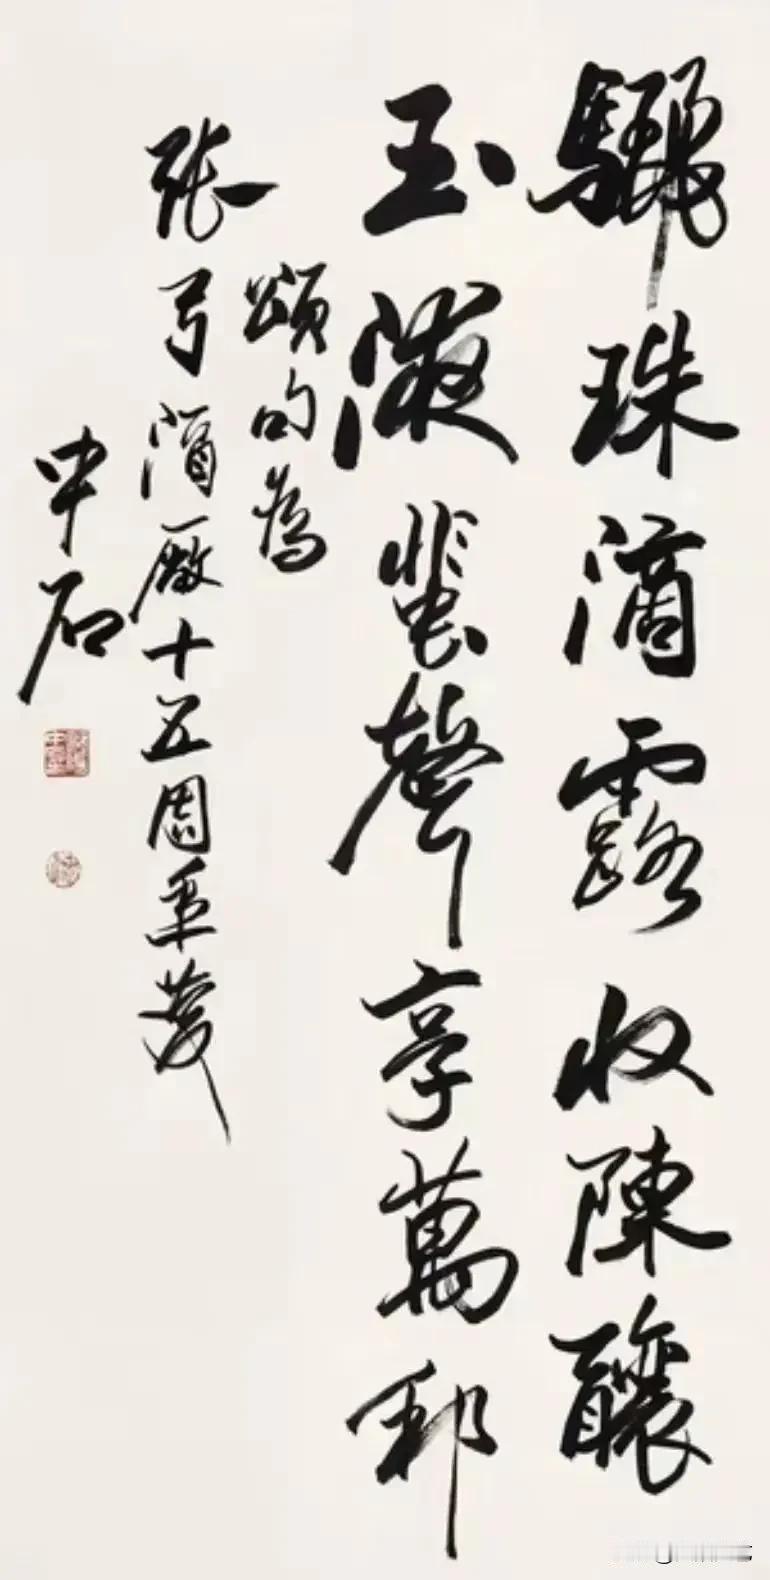 驪珠滴露收陳釀
玉液蜚聲享萬邦
頌句為
張弓酒厰十五周年
中石